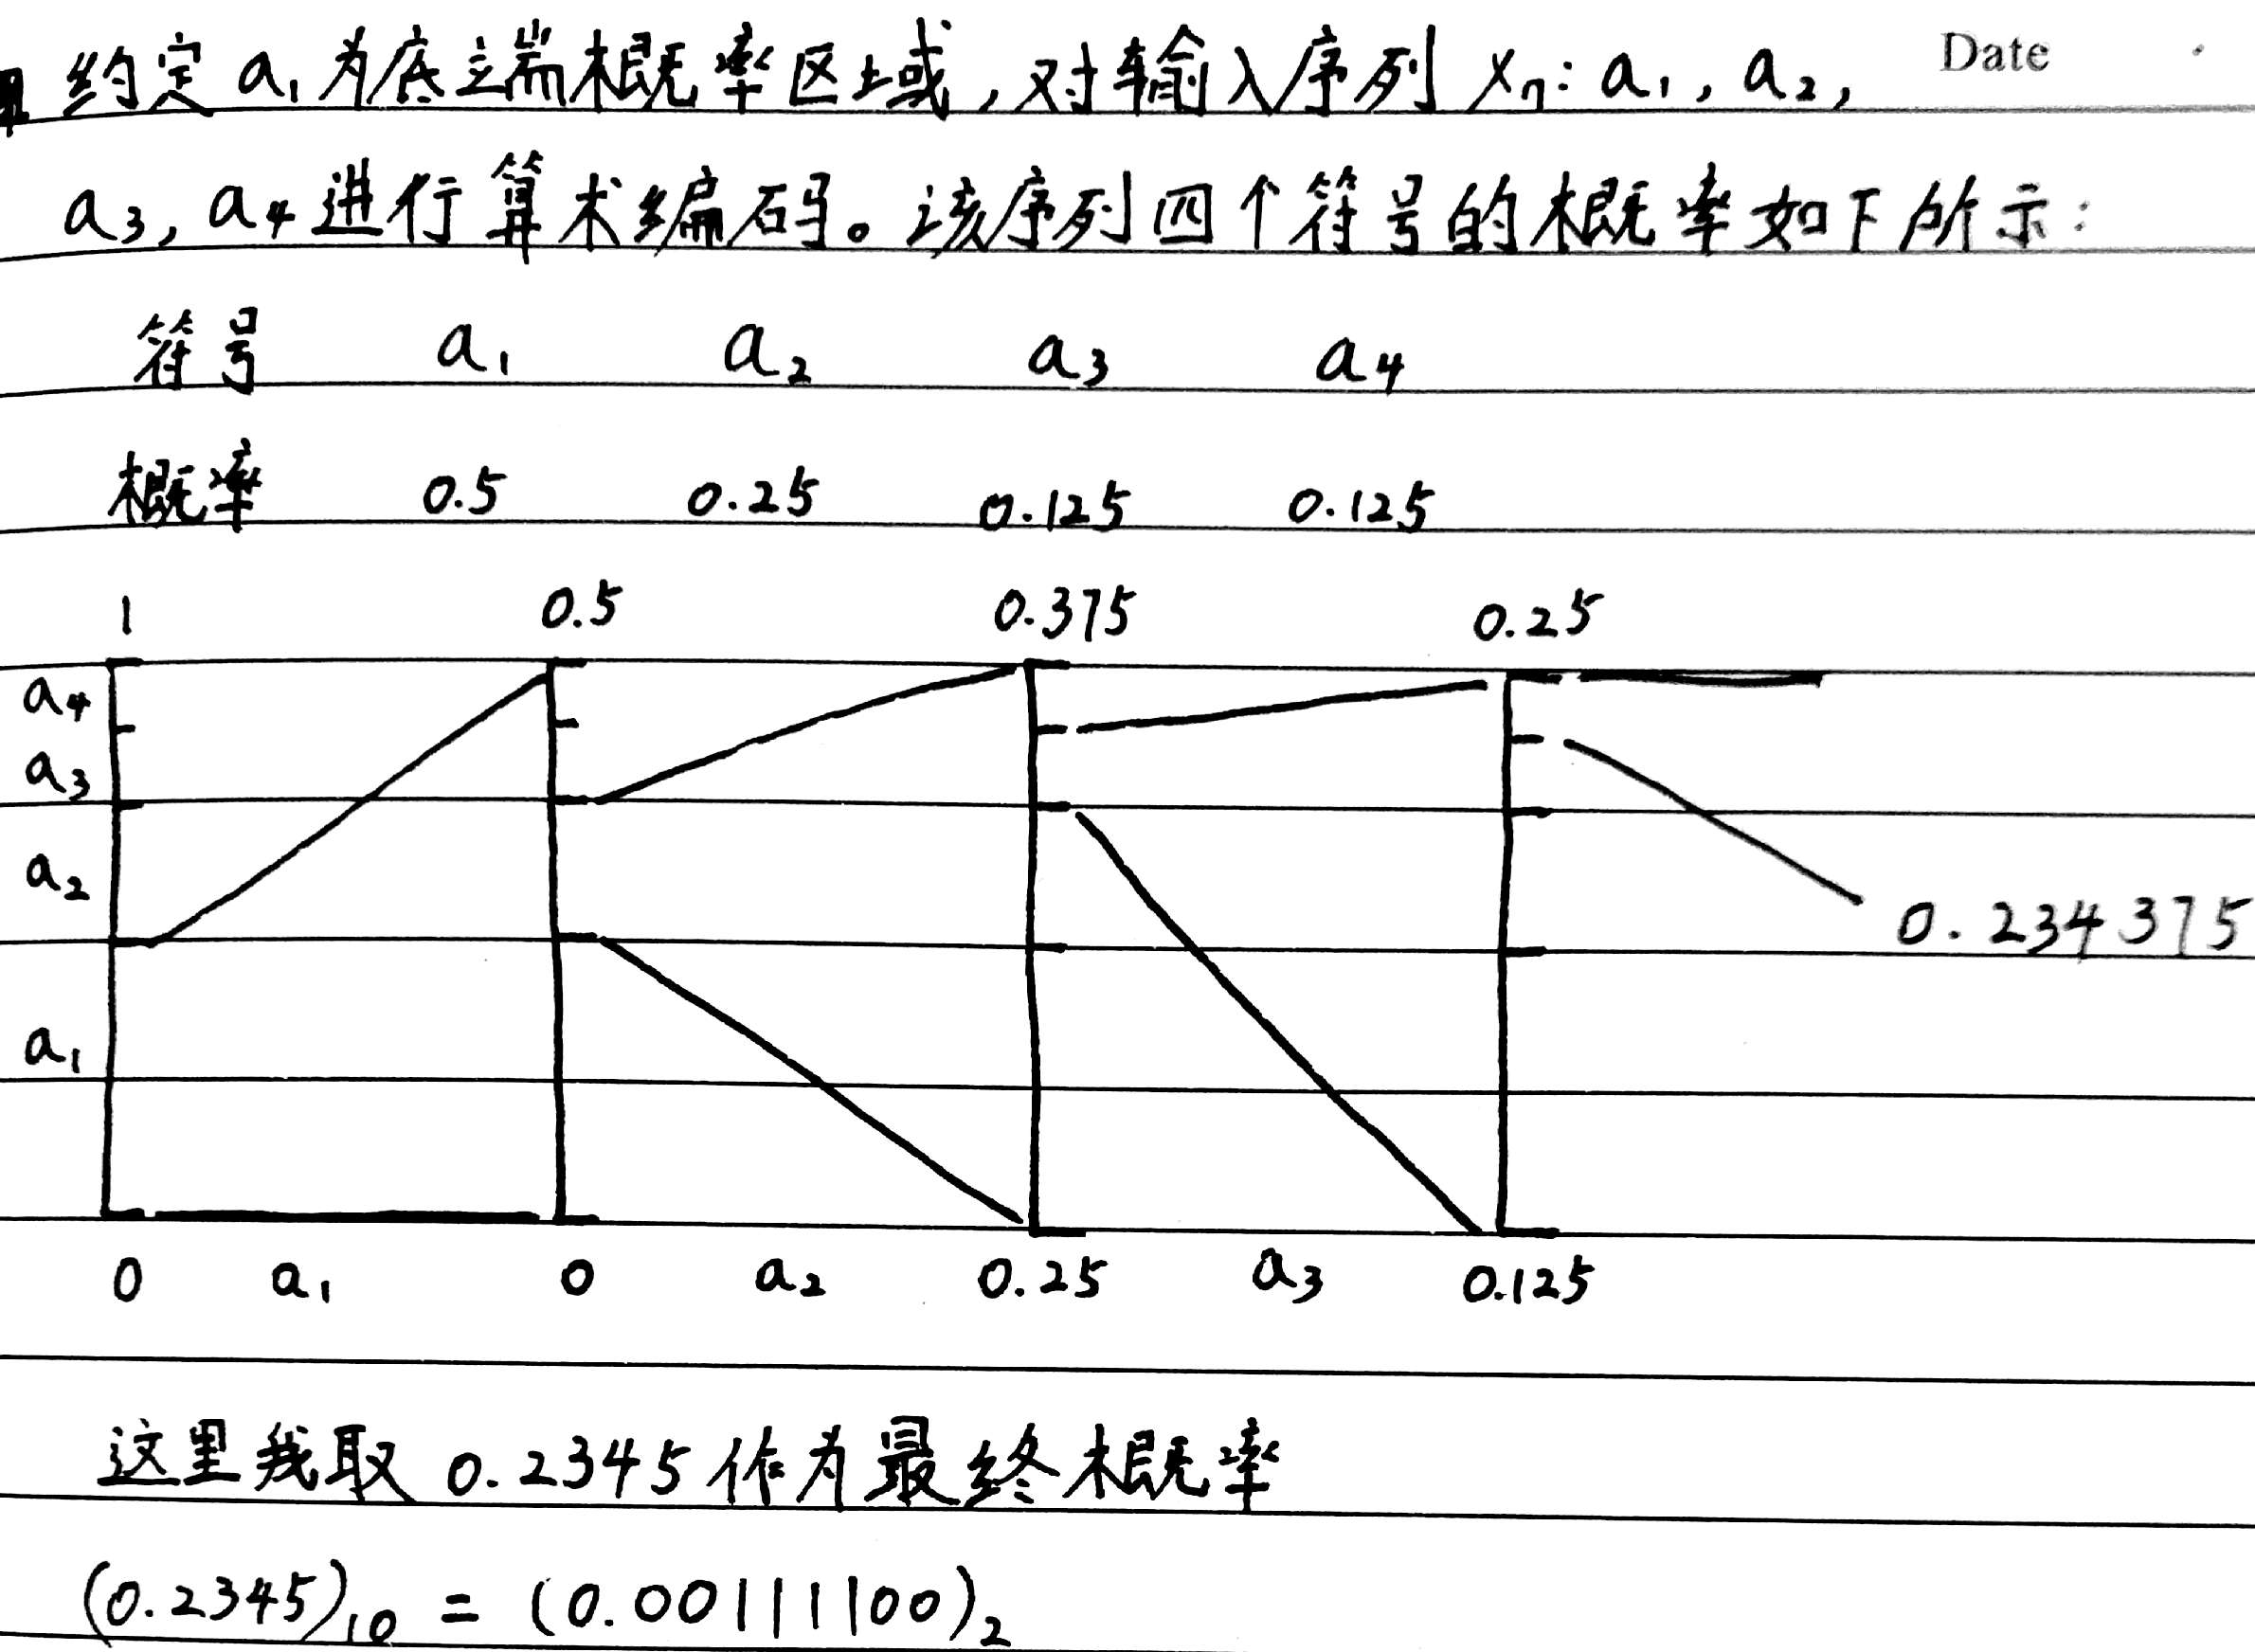 Date
约定 a₁为底端概率区域，对输入序列 Xn: a₁, a₂,
a₃, a₄进行算术编码。该序列四个符号的概率如下所示：
符号 a₁ a₂ a₃ a₄
概率 0.5 0.25 0.125 0.125
1 0.5 0.375 0.25
a₄
a₃
a₂
0.234375
a₁
0 a₁ 0 a₂ 0.25 a₃ 0.125
这里我取 0.2345 作为最终概率
(0.2345)₁₀ = (0.001111100)₂